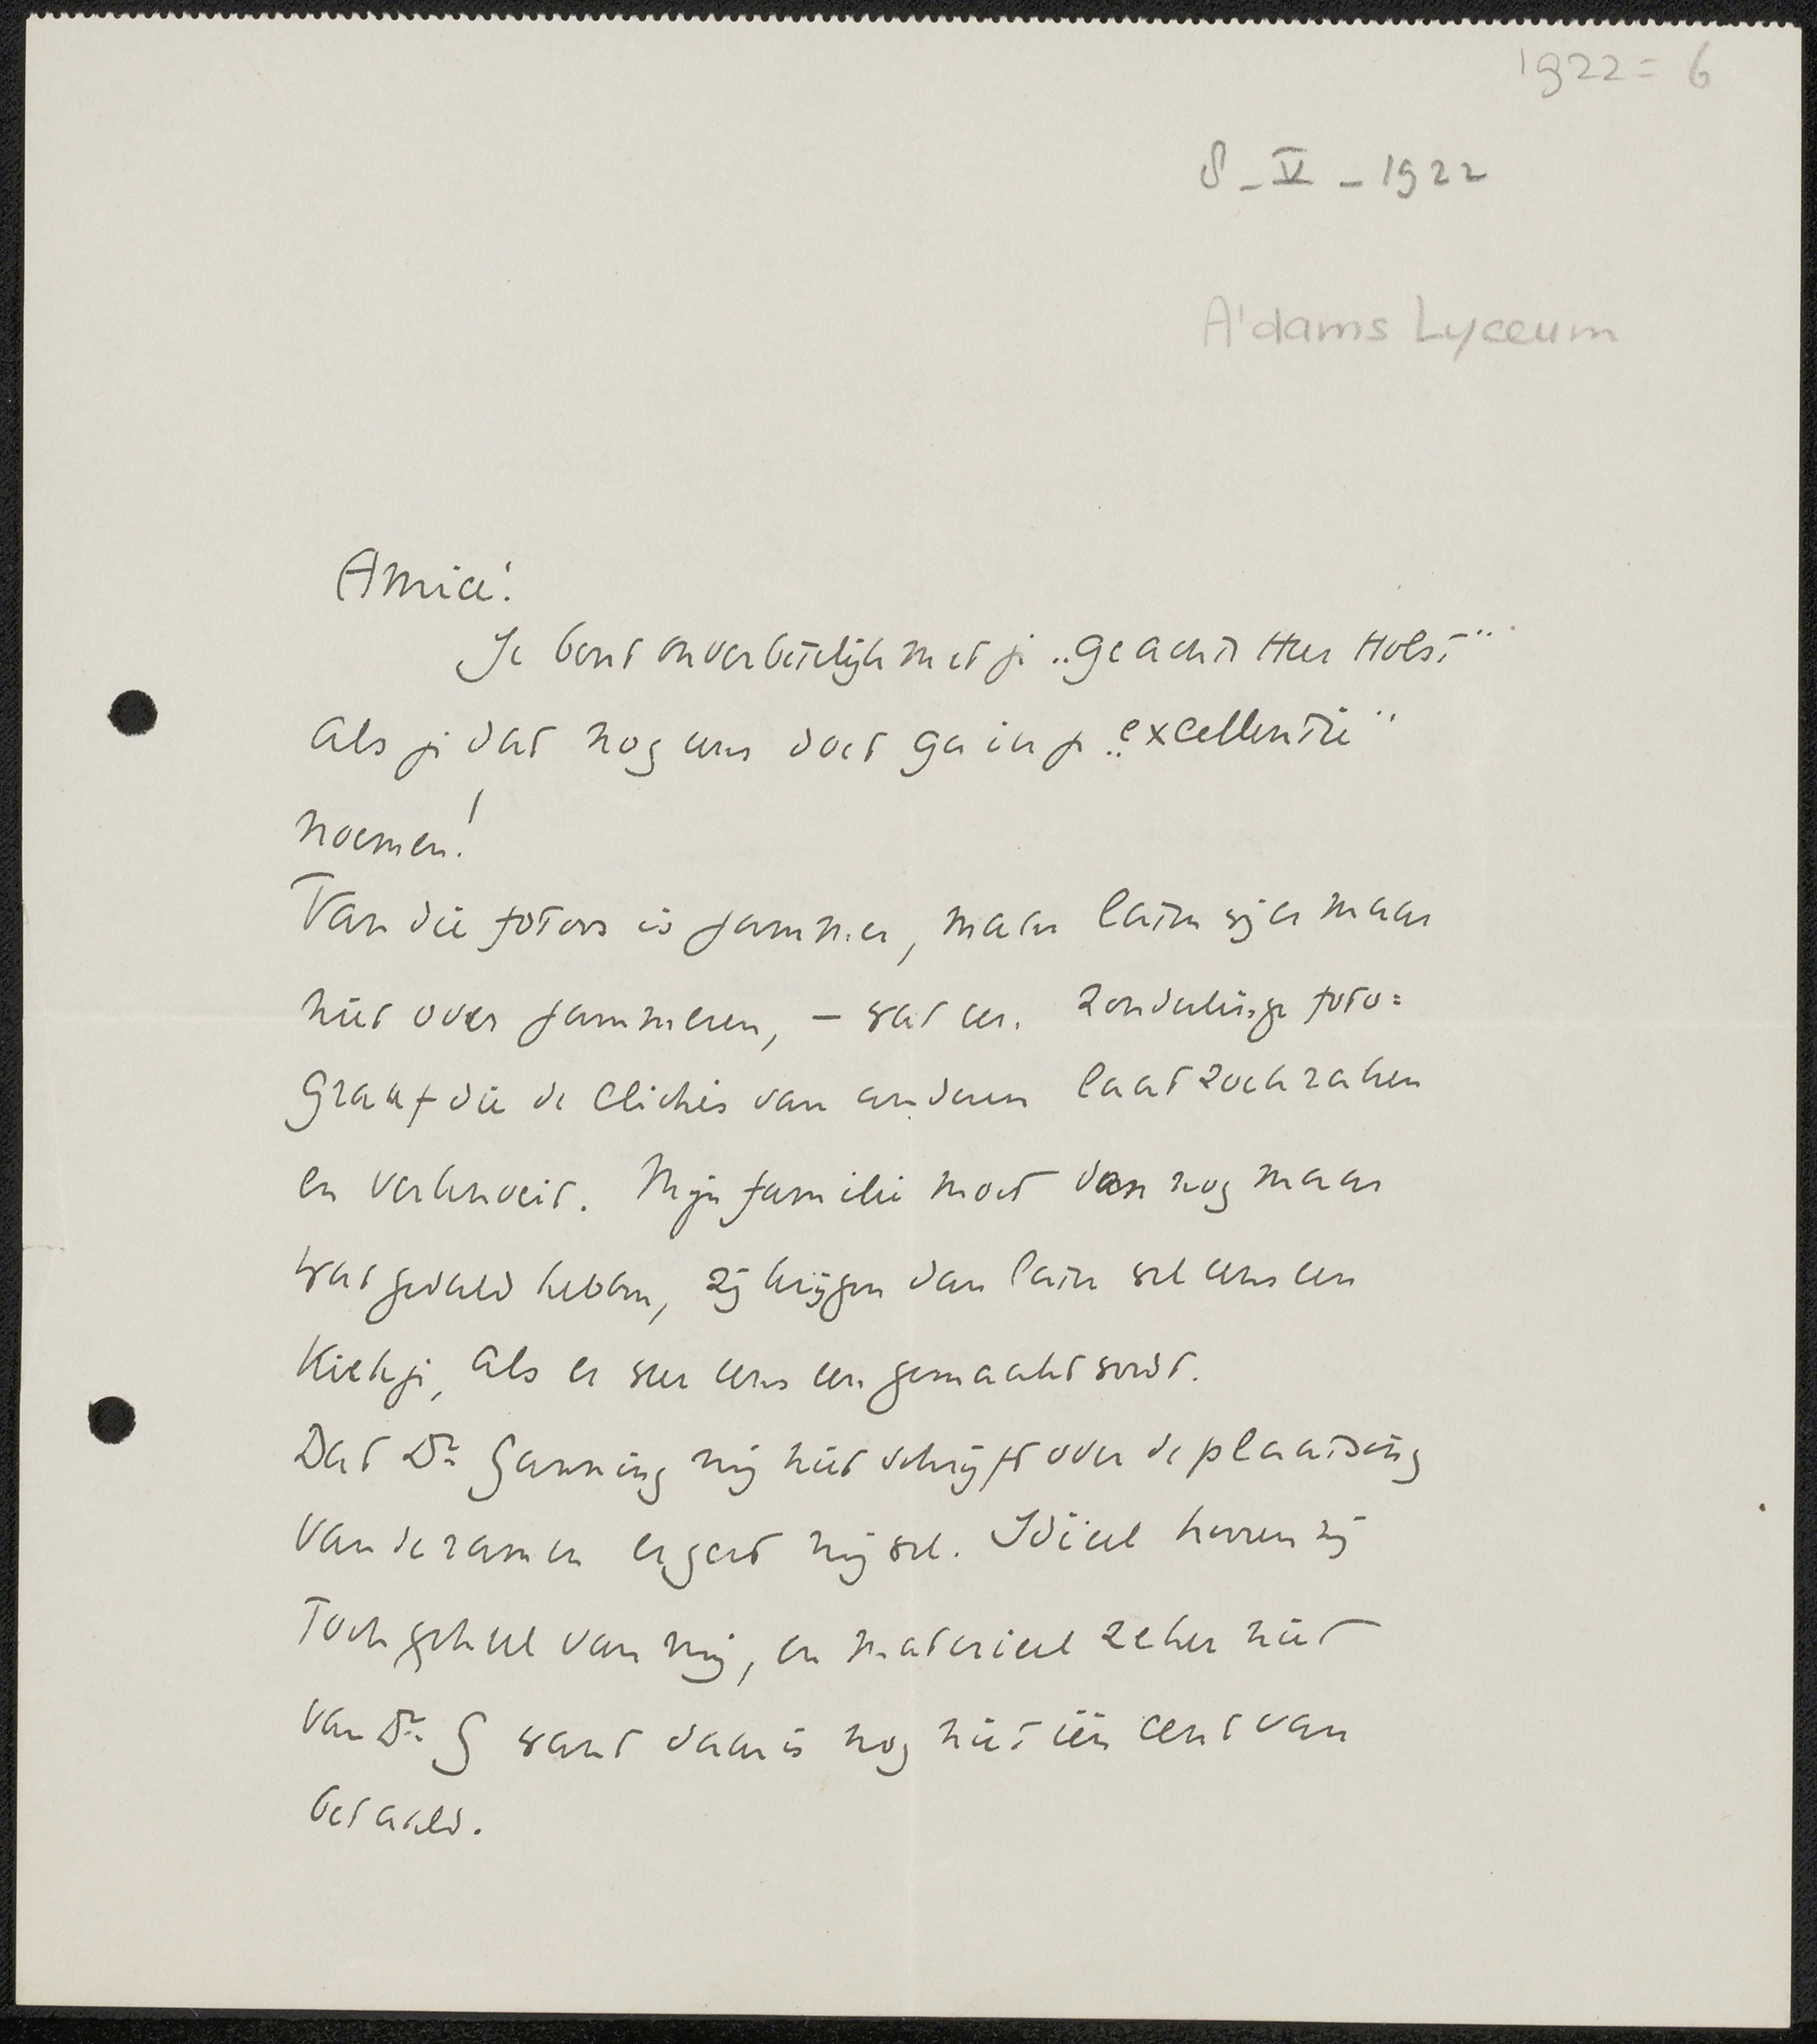 1922 = 6
8 - V - 1922
A'dams Lyceum
Amice!
Je bent onverbeterlijk met je „geachte Heer Holst"
als je dat nog eens doet ga ik je „excellentie"
noemen!
Van die foto's is jammer, maar laten wij er maar
niet over jammeren, — wat een zonderlinge foto=
graaf die de cliché's van anderen laat zoek raken
en verknoeit. Mijn familie moet dan nog maar
wat geduld hebben, zij krijgen dan later wel eens een
Kiekje, als er weer eens een gemaakt wordt.
Dat Dr. Gunning mij niet schrijft over de plaatsing
van de ramen ergert mij wel. Ideëel horen zij
toch geheel van mij, en materieel zeker niet
van Dr. G want daar is nog niet één cent van
betaald.